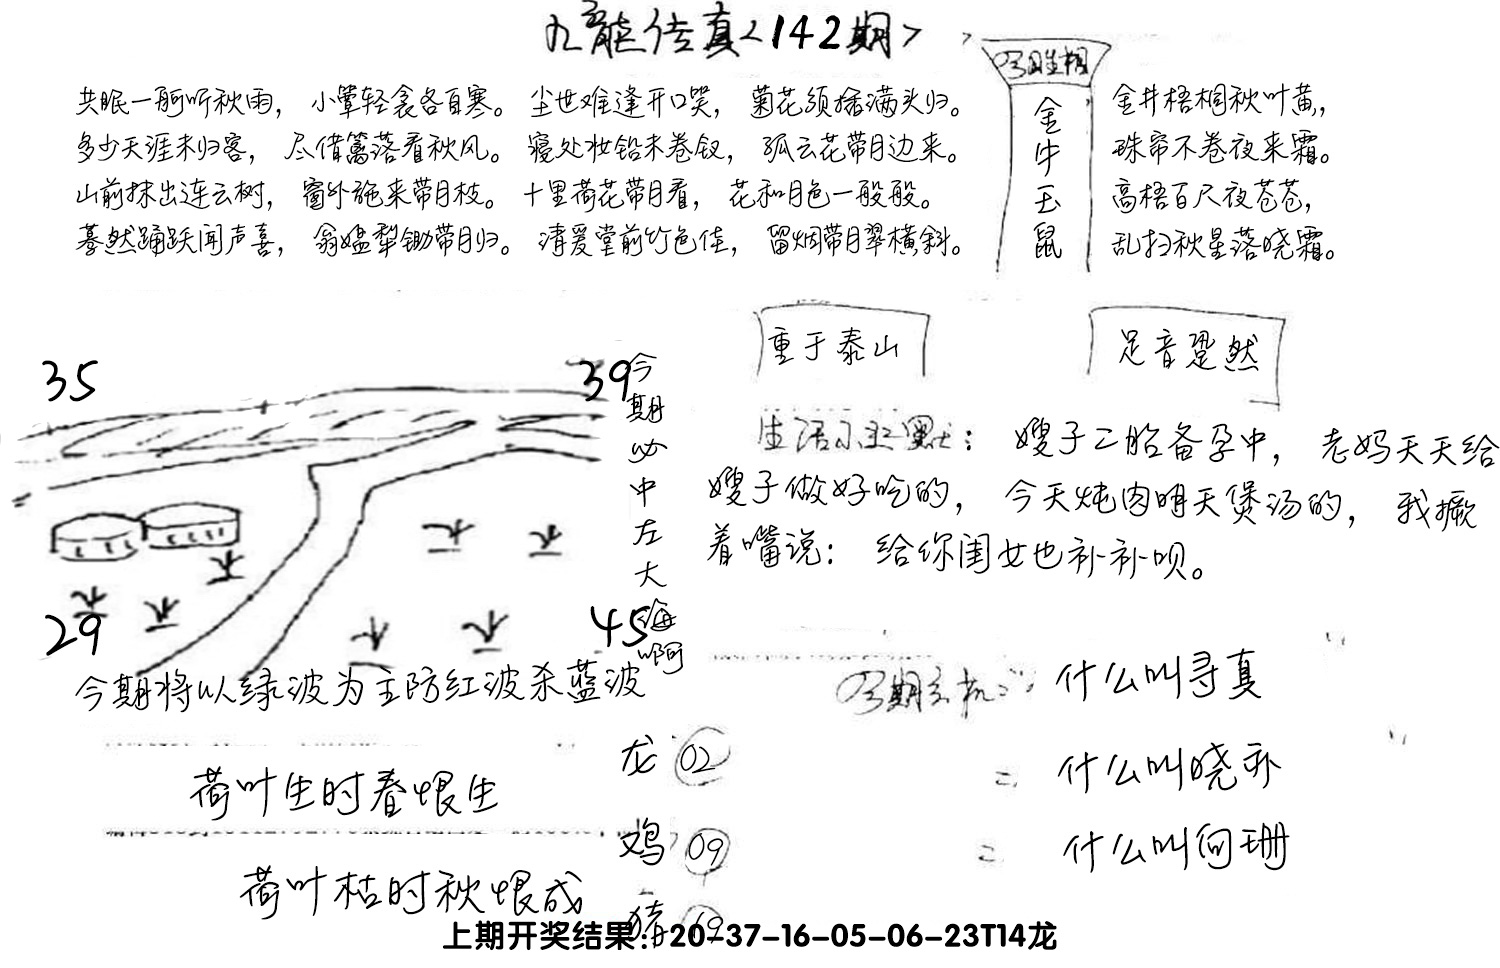 九龙传真<142期>
共眠一舸听秋雨，小簟轻衾各自寒。尘世难逢开口笑，菊花须插满头归。
多少天涯未归客，尽借篱落看秋风。寝处妆铅未卷钗，孤云花带月边来。
山前抹出连云树，窗外施来带月枝。十里荷花带月看，花和月色一般般。
蓦然踊跃闻声喜，翁媪犁锄带月归。清爱堂前竹色佳，留烟带月翠横斜。
金牛玉鼠
金井梧桐秋叶黄，
珠帘不卷夜来霜。
高梧百尺夜苍苍，
乱扫秋星落晓霜。
35
39
29
45
今期必中左大海啊
今期将以绿波为主防红波杀蓝波
荷叶生时春恨生
荷叶枯时秋恨成
重于泰山
足音跫然
生活幽默：嫂子二胎备孕中，老妈天天给
嫂子做好吃的，今天炖肉明天煲汤的，我撅
着嘴说：给你闺女也补补呗。
龙 02
鸡 09
猪 19
什么叫寻真
= 什么叫晓卦
= 什么叫何珊
上期开奖结果：20-37-16-05-06-23T14龙